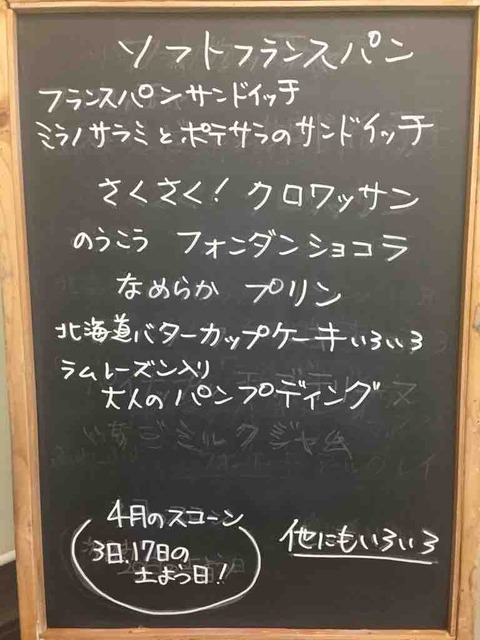 ソフトフランスパン
フランスパンサンドイッチ
ミラノサラミとポテサラのサンドイッチ
さくさく！クロワッサン
のうこう フォンダンショコラ
なめらか プリン
北海道バターカップケーキいろいろ
ラムレーズン入り
大人のパンプディング
いちごミルクジャム
4月のスコーン
3日、17日の
土よう日！
他にもいろいろ